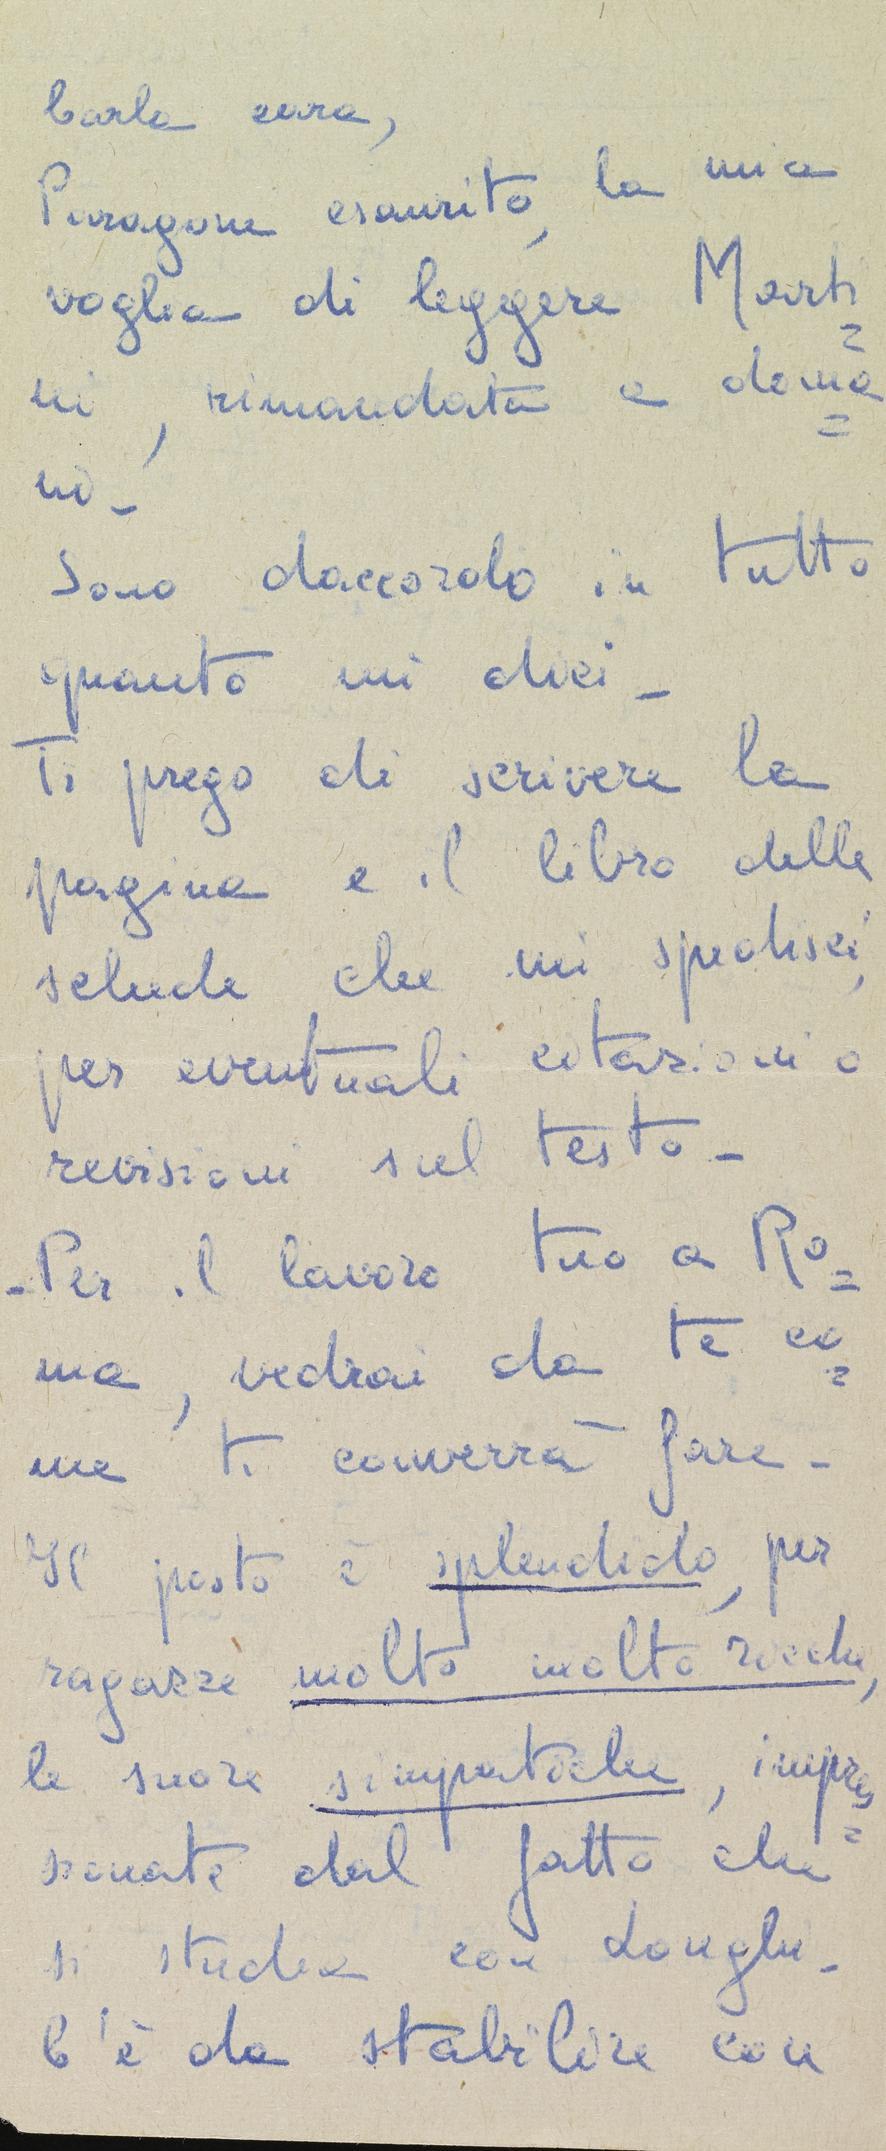 Carla cara,
Paragone esaurito, la mia
voglia di leggere Marti=
ni, rimandata a doma=
ni -
Sono daccordo in tutto
quanto mi dici -
Ti prego di scrivere la
pagina e il libro delle
schede che mi spedisci,
per eventuali citazioni o
revisioni sul testo -
- Per il lavoro tuo a Ro=
ma, vedrai da te co=
me ti converrà fare -
Il posto è splendido, per
ragazze molto molto ricche,
le suore simpatiche, impres=
sionate dal fatto che
si studia con Longhi -
C'è da stabilire con